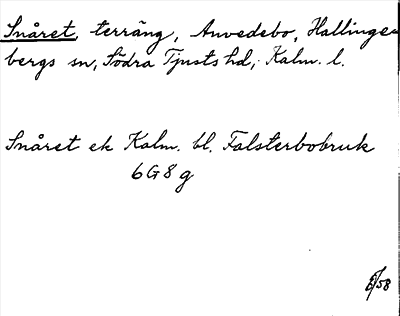 Snåret, terräng, Anvedebo, Hallinge-
bergs sn, Södra Tjusts hd, Kalm. l.
Snåret ek Kalm. bl. Falsterbobruk
6G8g